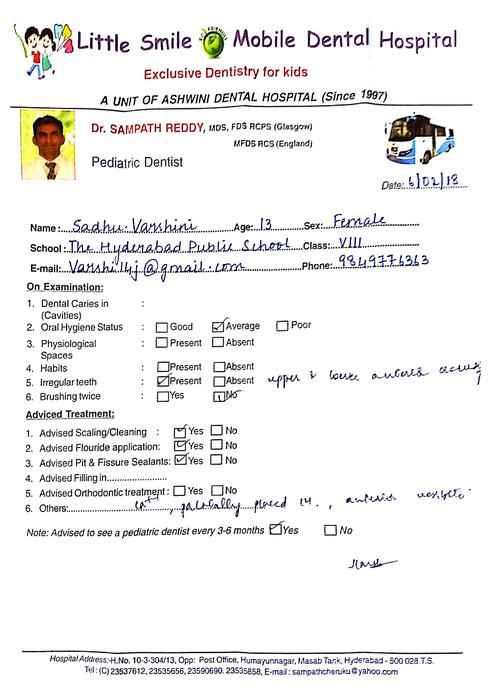 Little Smile Mobile Dental Hospital
Exclusive Dentistry for kids
A UNIT OF ASHWINI DENTAL HOSPITAL (Since 1997)
Dr. SAMPATH REDDY, MDS, FDS RCPS (Glasgow)
MFDS RCS (England)
Pediatric Dentist
Date: 6/02/18
Name: Sadhu. Varshini Age: 13 Sex: Female
School: The Hyderabad Public School Class: VIII
E-mail: Varshi14j@gmail.com Phone: 9849776363
On Examination:
1. Dental Caries in :
(Cavities)
2. Oral Hygiene Status : Good Average Poor
3. Physiological : Present Absent
Spaces
4. Habits : Present Absent
5. Irregular teeth : Present Absent upper & lower anterior
6. Brushing twice : Yes No
Adviced Treatment:
1. Advised Scaling/Cleaning : Yes No
2. Advised Flouride application: Yes No
3. Advised Pit & Fissure Sealants: Yes No
4. Advised Filling in
5. Advised Orthodontic treatment: Yes No
6. Others: palatally placed anterior
Note: Advised to see a pediatric dentist every 3-6 months Yes No
Hospital Address:-H.No. 10-3-304/13, Opp: Post Office, Humayunnagar, Masab Tank, Hyderabad - 500 028.T.S.
Tel: (C) 23537612, 23535656, 23590690. 23535858, E-mail: sampathcheruku@yahoo.com